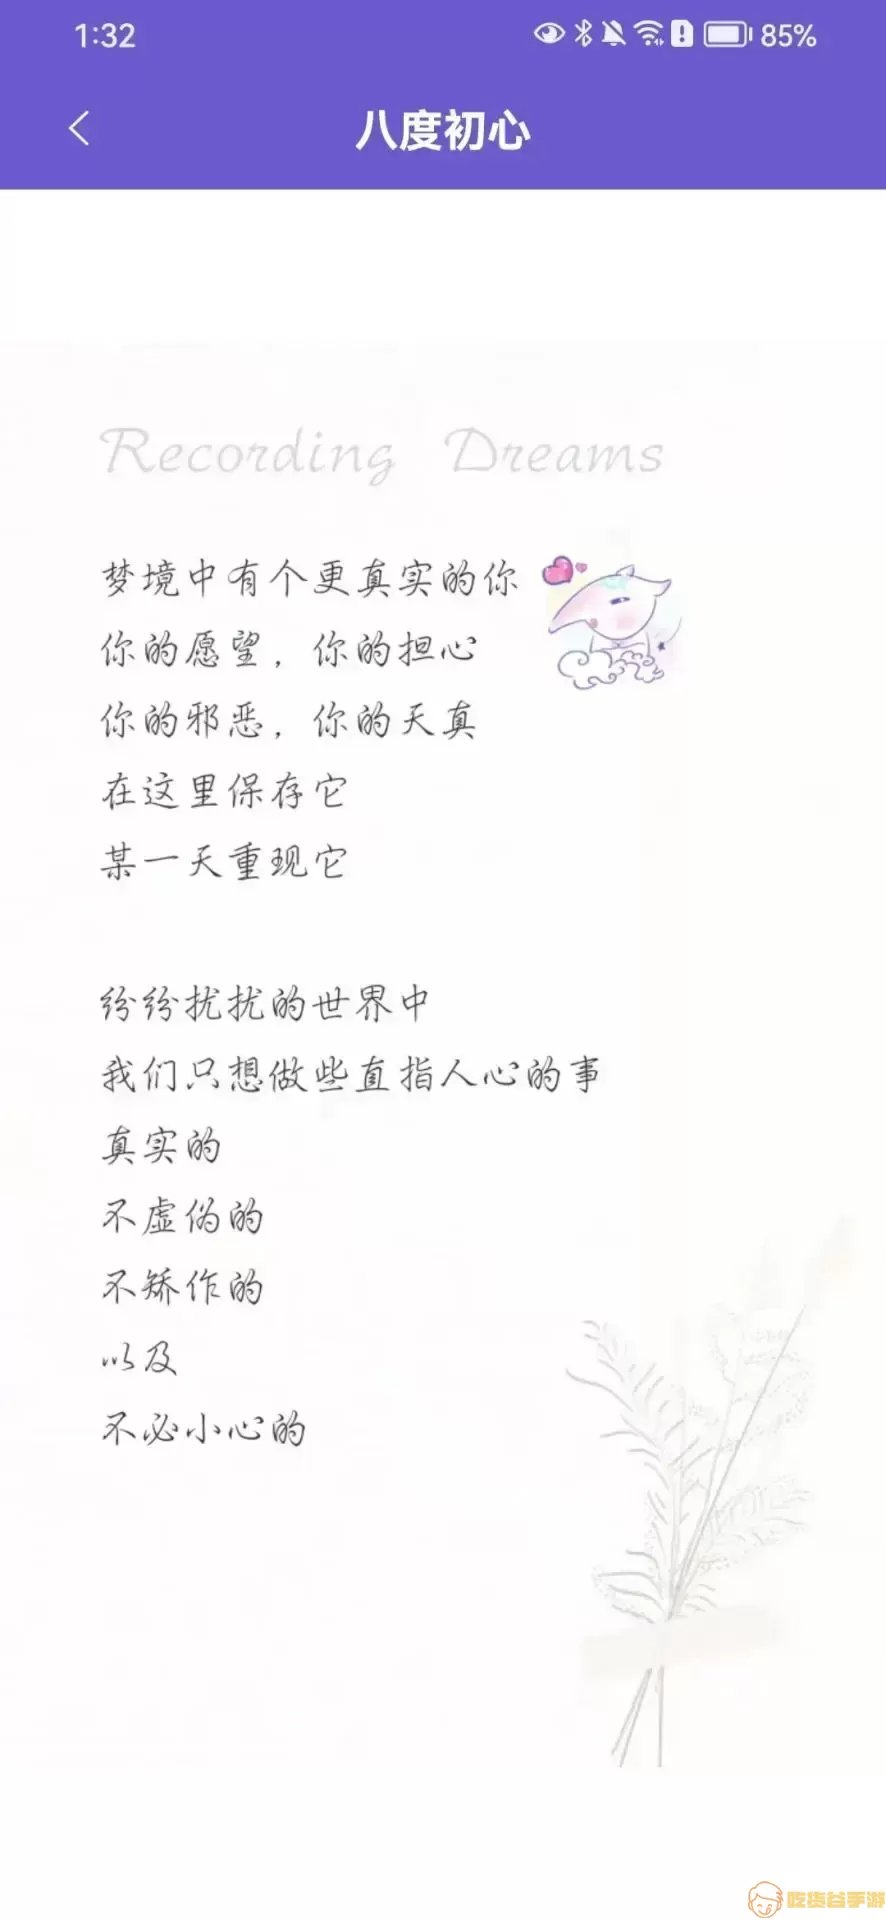 1:32
85%
八度初心
Recording Dreams
梦境中有个更真实的你
你的愿望，你的担心
你的邪恶，你的天真
在这里保存它
某一天重现它
纷纷扰扰的世界中
我们只想做些直指人心的事
真实的
不虚伪的
不矫作的
以及
不必小心的
吃货谷手游